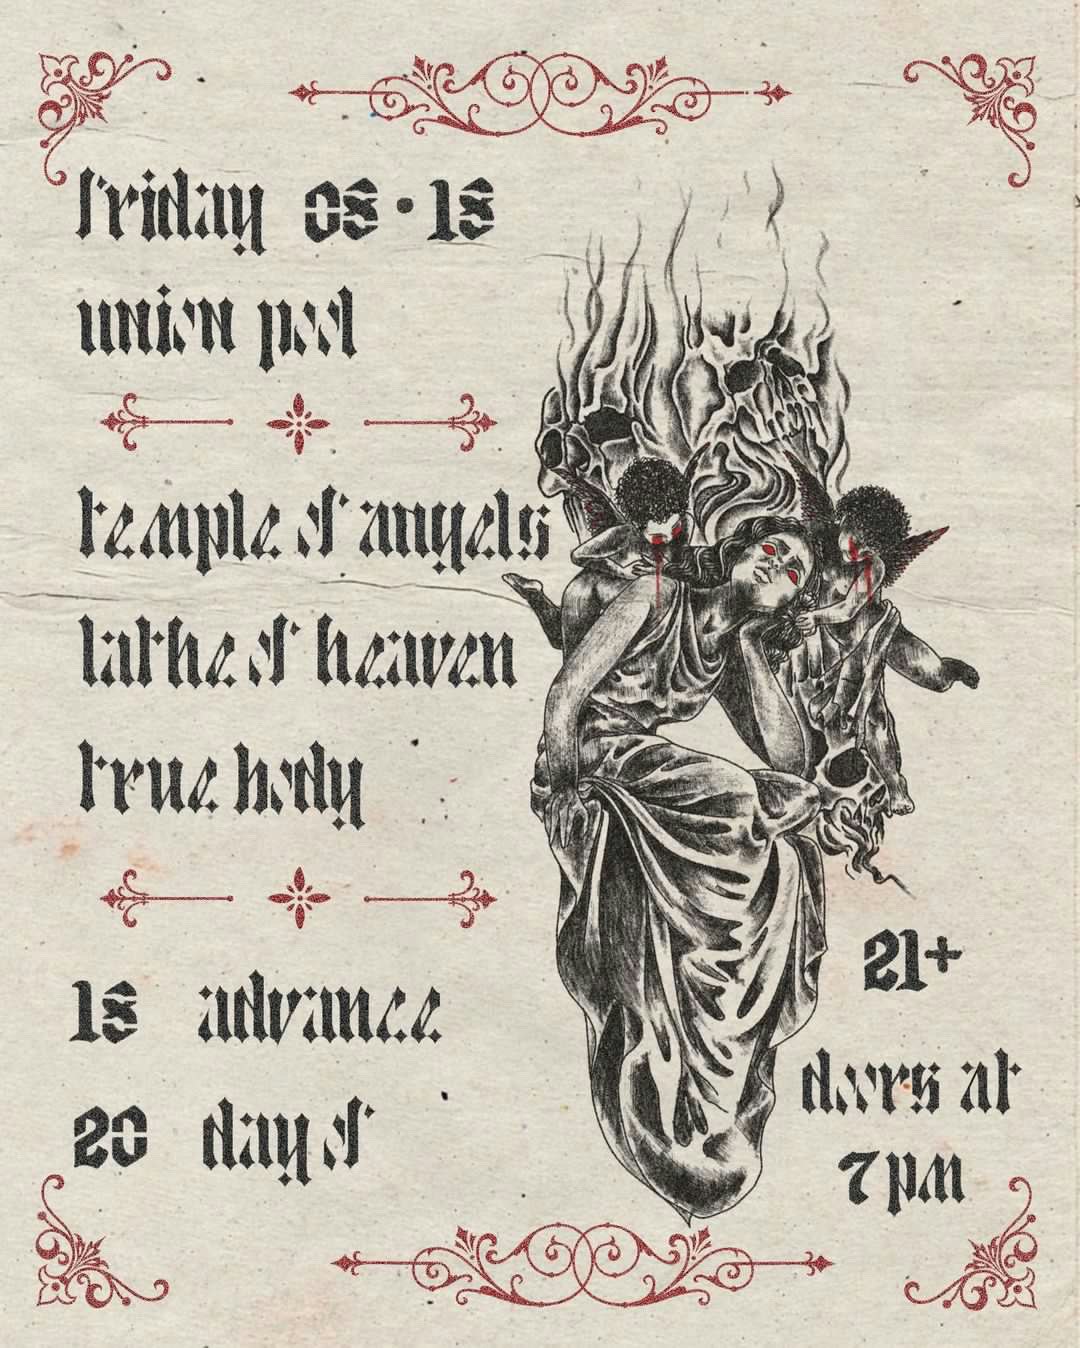 friday 08 • 18
union pool
temple of angels
lathe of heaven
true body
18 advance
20 day of
21+
doors at
7 pm